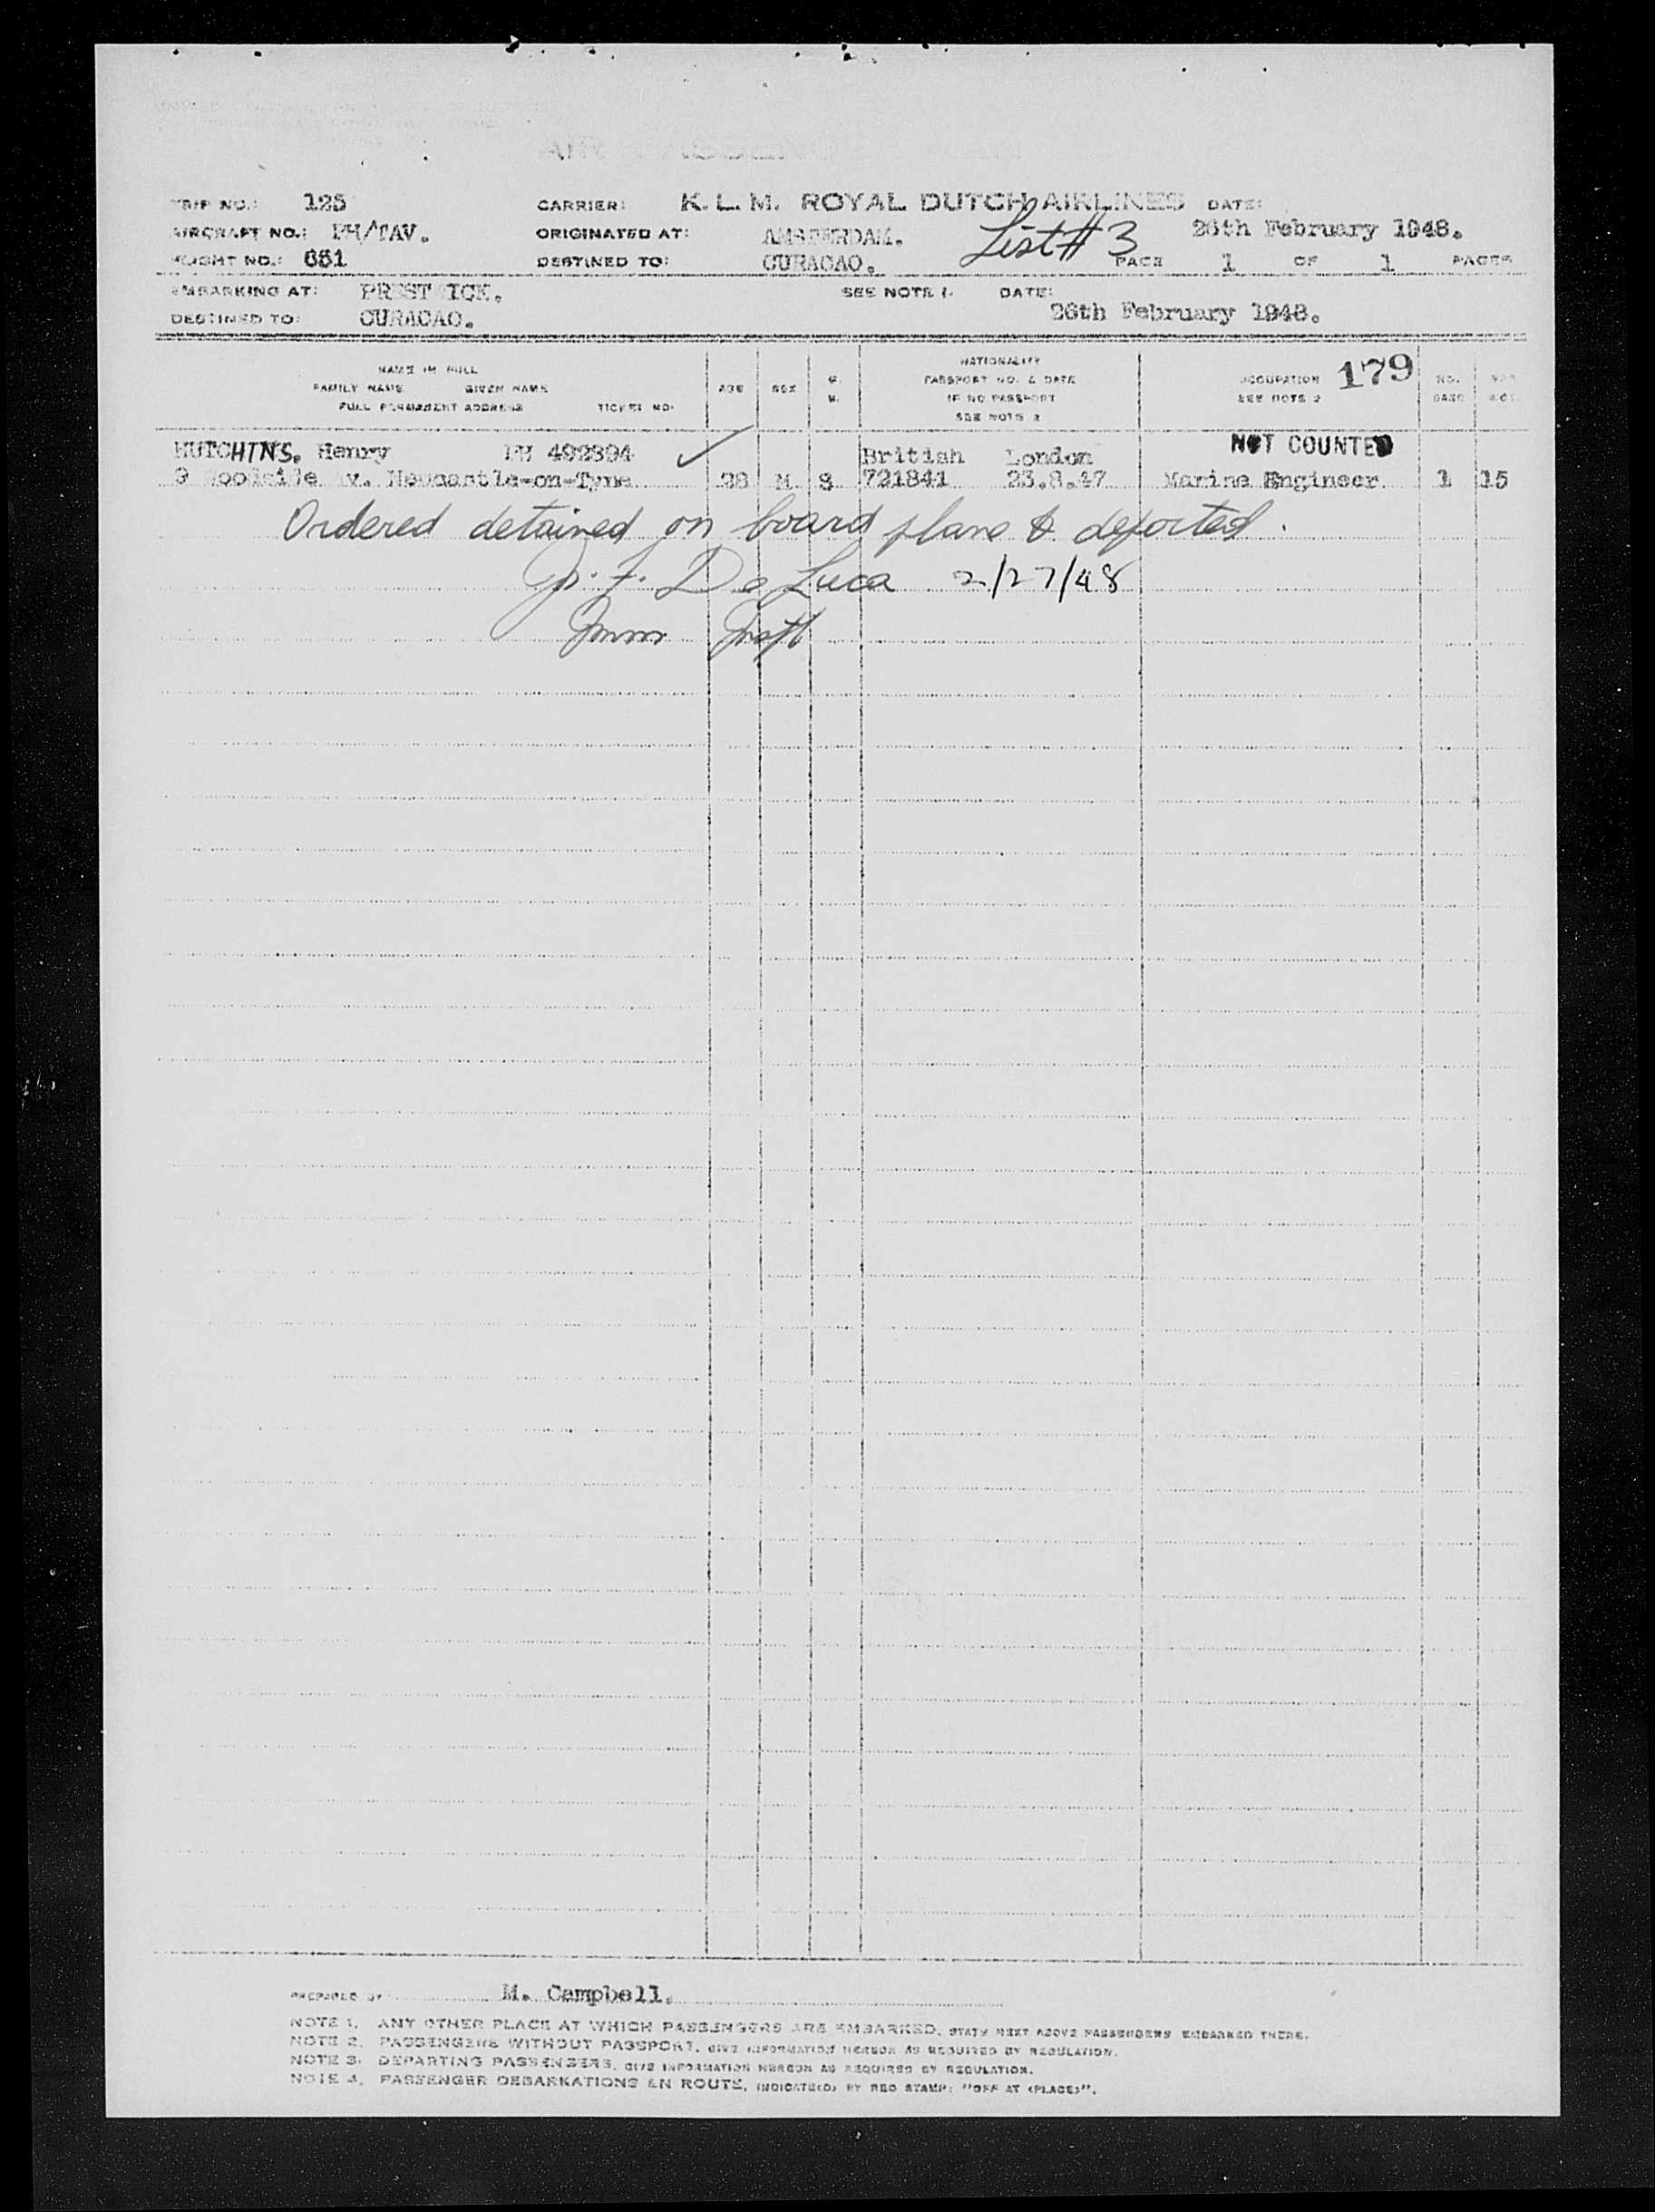 TRIP NO.: 125 CARRIER: K.L.M. ROYAL DUTCH AIRLINES DATE:
AIRCRAFT NO.: PH/TAV. ORIGINATED AT: AMSTERDAM. List # 3 26th February 1948.
FLIGHT NO.: 651 DESTINED TO: CURACAO. PAGE 1 OF 1 PAGES
EMBARKING AT: PREST ICK. SEE NOTE 1. DATE:
DESTINED TO: CURACAO. 26th February 1948.
NAME IN FULL
FAMILY NAME GIVEN NAME
FULL PERMANENT ADDRESS TICKET NO.
AGE SEX
NATIONALITY
PASSPORT NO. & DATE
IF NO PASSPORT
SEE NOTE 2
OCCUPATION 179
SEE NOTE 2
NO.
NOT COUNTED
HUTCHINS. Henry 492394 ✓ British London
9 Woodside Av. Newcastle-on-Tyne 28 M S 721841 23.8.47 Marine Engineer 1 15
Ordered detained on board plane & deported.
De Luca 2/27/48
Imm Inspt
PREPARED BY M. Campbell.
NOTE 1. ANY OTHER PLACE AT WHICH PASSENGERS ARE EMBARKED, STATE NEXT ABOVE PASSENGERS EMBARKED THERE.
NOTE 2. PASSENGERS WITHOUT PASSPORT, GIVE INFORMATION HEREON AS REQUIRED BY REGULATION.
NOTE 3. DEPARTING PASSENGERS, GIVE INFORMATION HEREON AS REQUIRED BY REGULATION.
NOTE 4. PASSENGER DEBARKATIONS EN ROUTE, INDICATE(D) BY RED STAMP: "OFF AT (PLACE)".